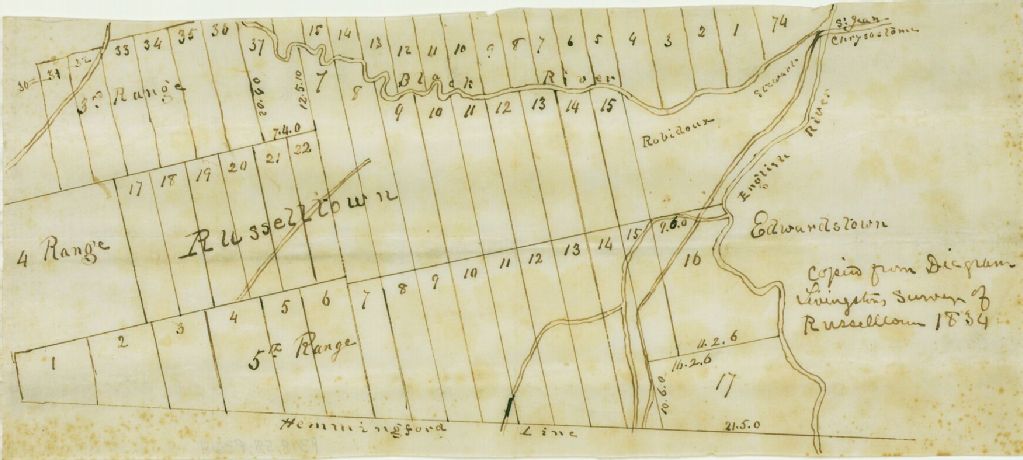 33 34 35 36 37 15 14 13 12 11 10 9 8 7 6 5 4 3 2 1 74
St. Jean
Chrysostome
30 31 32
3rd Range
20.0.0
12.5.10
7 8
Black River
9 10 11 12 13 14 15
7.4.0
Robidoux
River
English
17 18 19 20 21 22
Russelltown
4 Range
9.6.0
Edwardstown
7 8 9 10 11 12 13 14 15 16
1 2 3 4 5 6
5th Range
Copied from Diagram
Livingston's Survey of
Russelltown 1834
11.2.6
10.2.6
10.6.0
17
21.5.0
Hemmingford Line